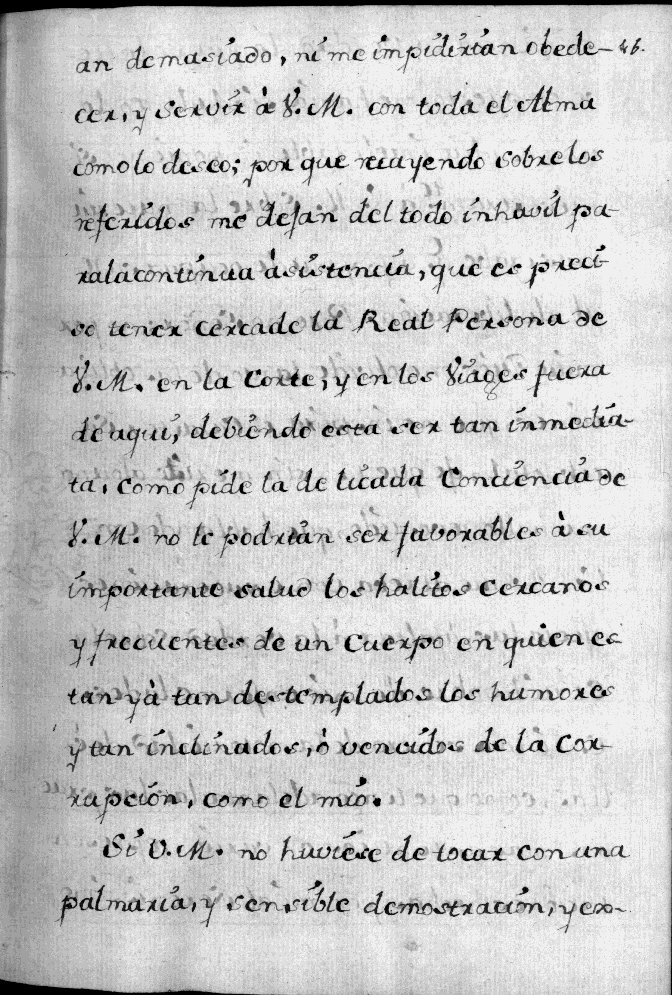 an demasiado, ni me impidirian obede- 46.
cer, y servir à V. M. con toda el Alma
como lo deseo; por que recuyendo sobre los
referidos me dejan del todo inhavil pa-
ra la continua àsistencia, que es preci-
so tener cerca de la Real Persona de
V. M. en la Corte, y en los Viages fuera
de aqui, debiendo esta ser tan inmedia-
ta, como pide la delicada Conciencia de
V. M. no le podrian ser favorables à su
importante salud los halitos cercanos
y frecuentes de un Cuerpo en quien es-
tan yà tan destemplados los humores
y tan inclinados, ò vencidos de la Cor-
rupcion, como el mio.
Si V. M. no huviese de tocar con una
palmaria, y sensible demostracion, y ex-